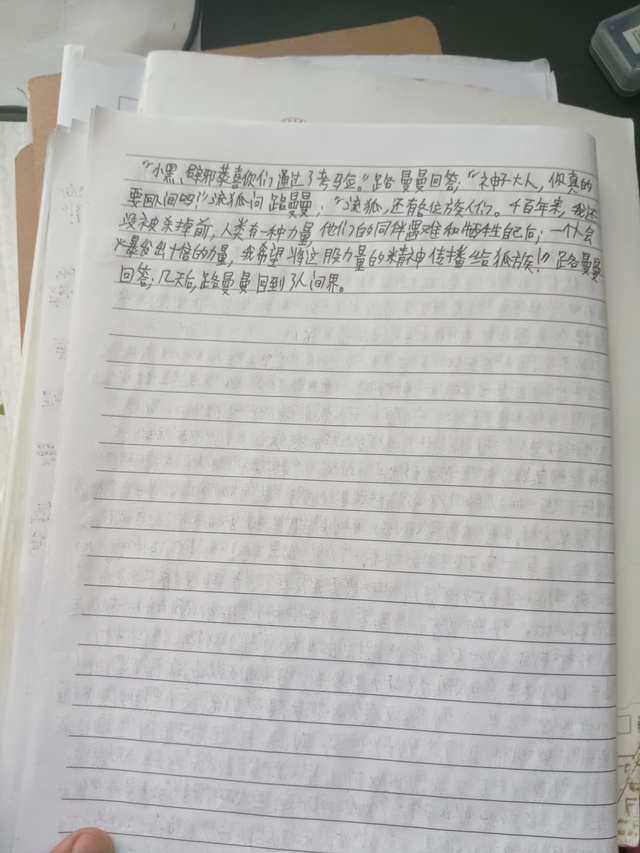 “小黑、辟邪恭喜你们通过了考验。”路曼曼回答;“神子大人,你真的
要回人间吗?”滚狐问路曼曼;“滚狐,还有各位族人们。千百年来,我还
没被杀掉前,人类有一种力量,他们的同伴遇难和牺牲自己后;一个人会
爆发出十倍的力量,我希望将这股力量的精神传播给狐族!”路曼曼
回答;几天后,路曼曼回到了人间界。